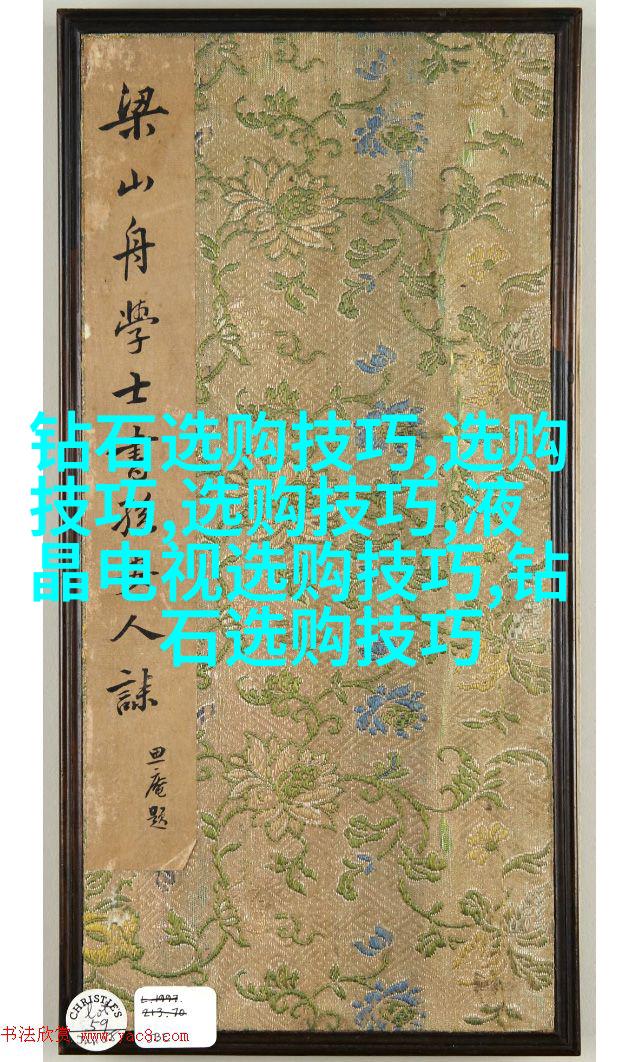 钻石选购技巧,选购
技巧,选购技巧,液
晶电视选购技巧,钻
石选购技巧
梁山舟学士書孫夫人誄
思庵题
CHRISTIE'S
lot
59
L.1997.
213.70
书法欣赏 www.yac8.com